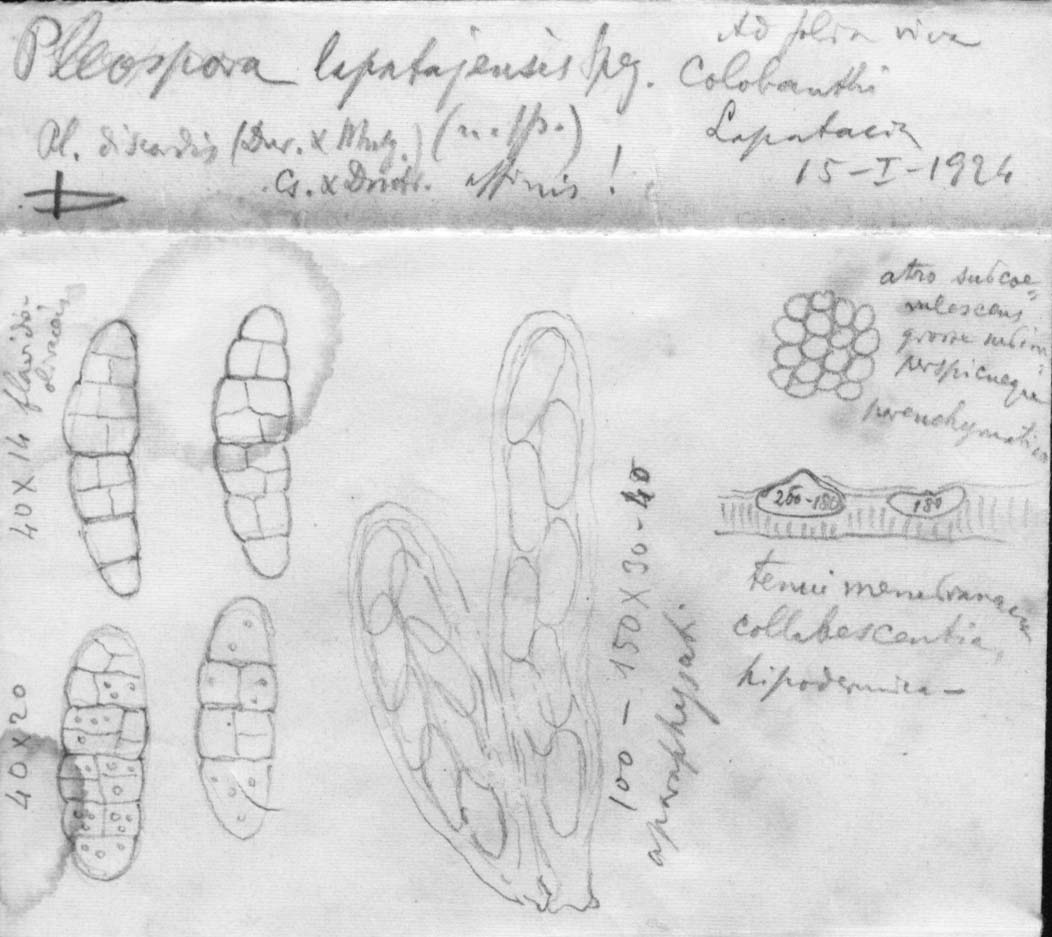 Pleospora lapatajensis Speg.
Ad folia viva
Colobanthi
Lapataia
15-I-1924
Pl. discordis (Dur. & Mntg.) (n. sp.)
Cs. & Dntrs. affinis!
40 x 14 flavido-
olivaceis
40 x 20
100 - 150 x 30 - 40
aparaphysati
atro subcoe=
rulescens
grosse
perspicueque
parenchymatica
250-180
180
tenui membranacea
collabescentia,
hipodermica -